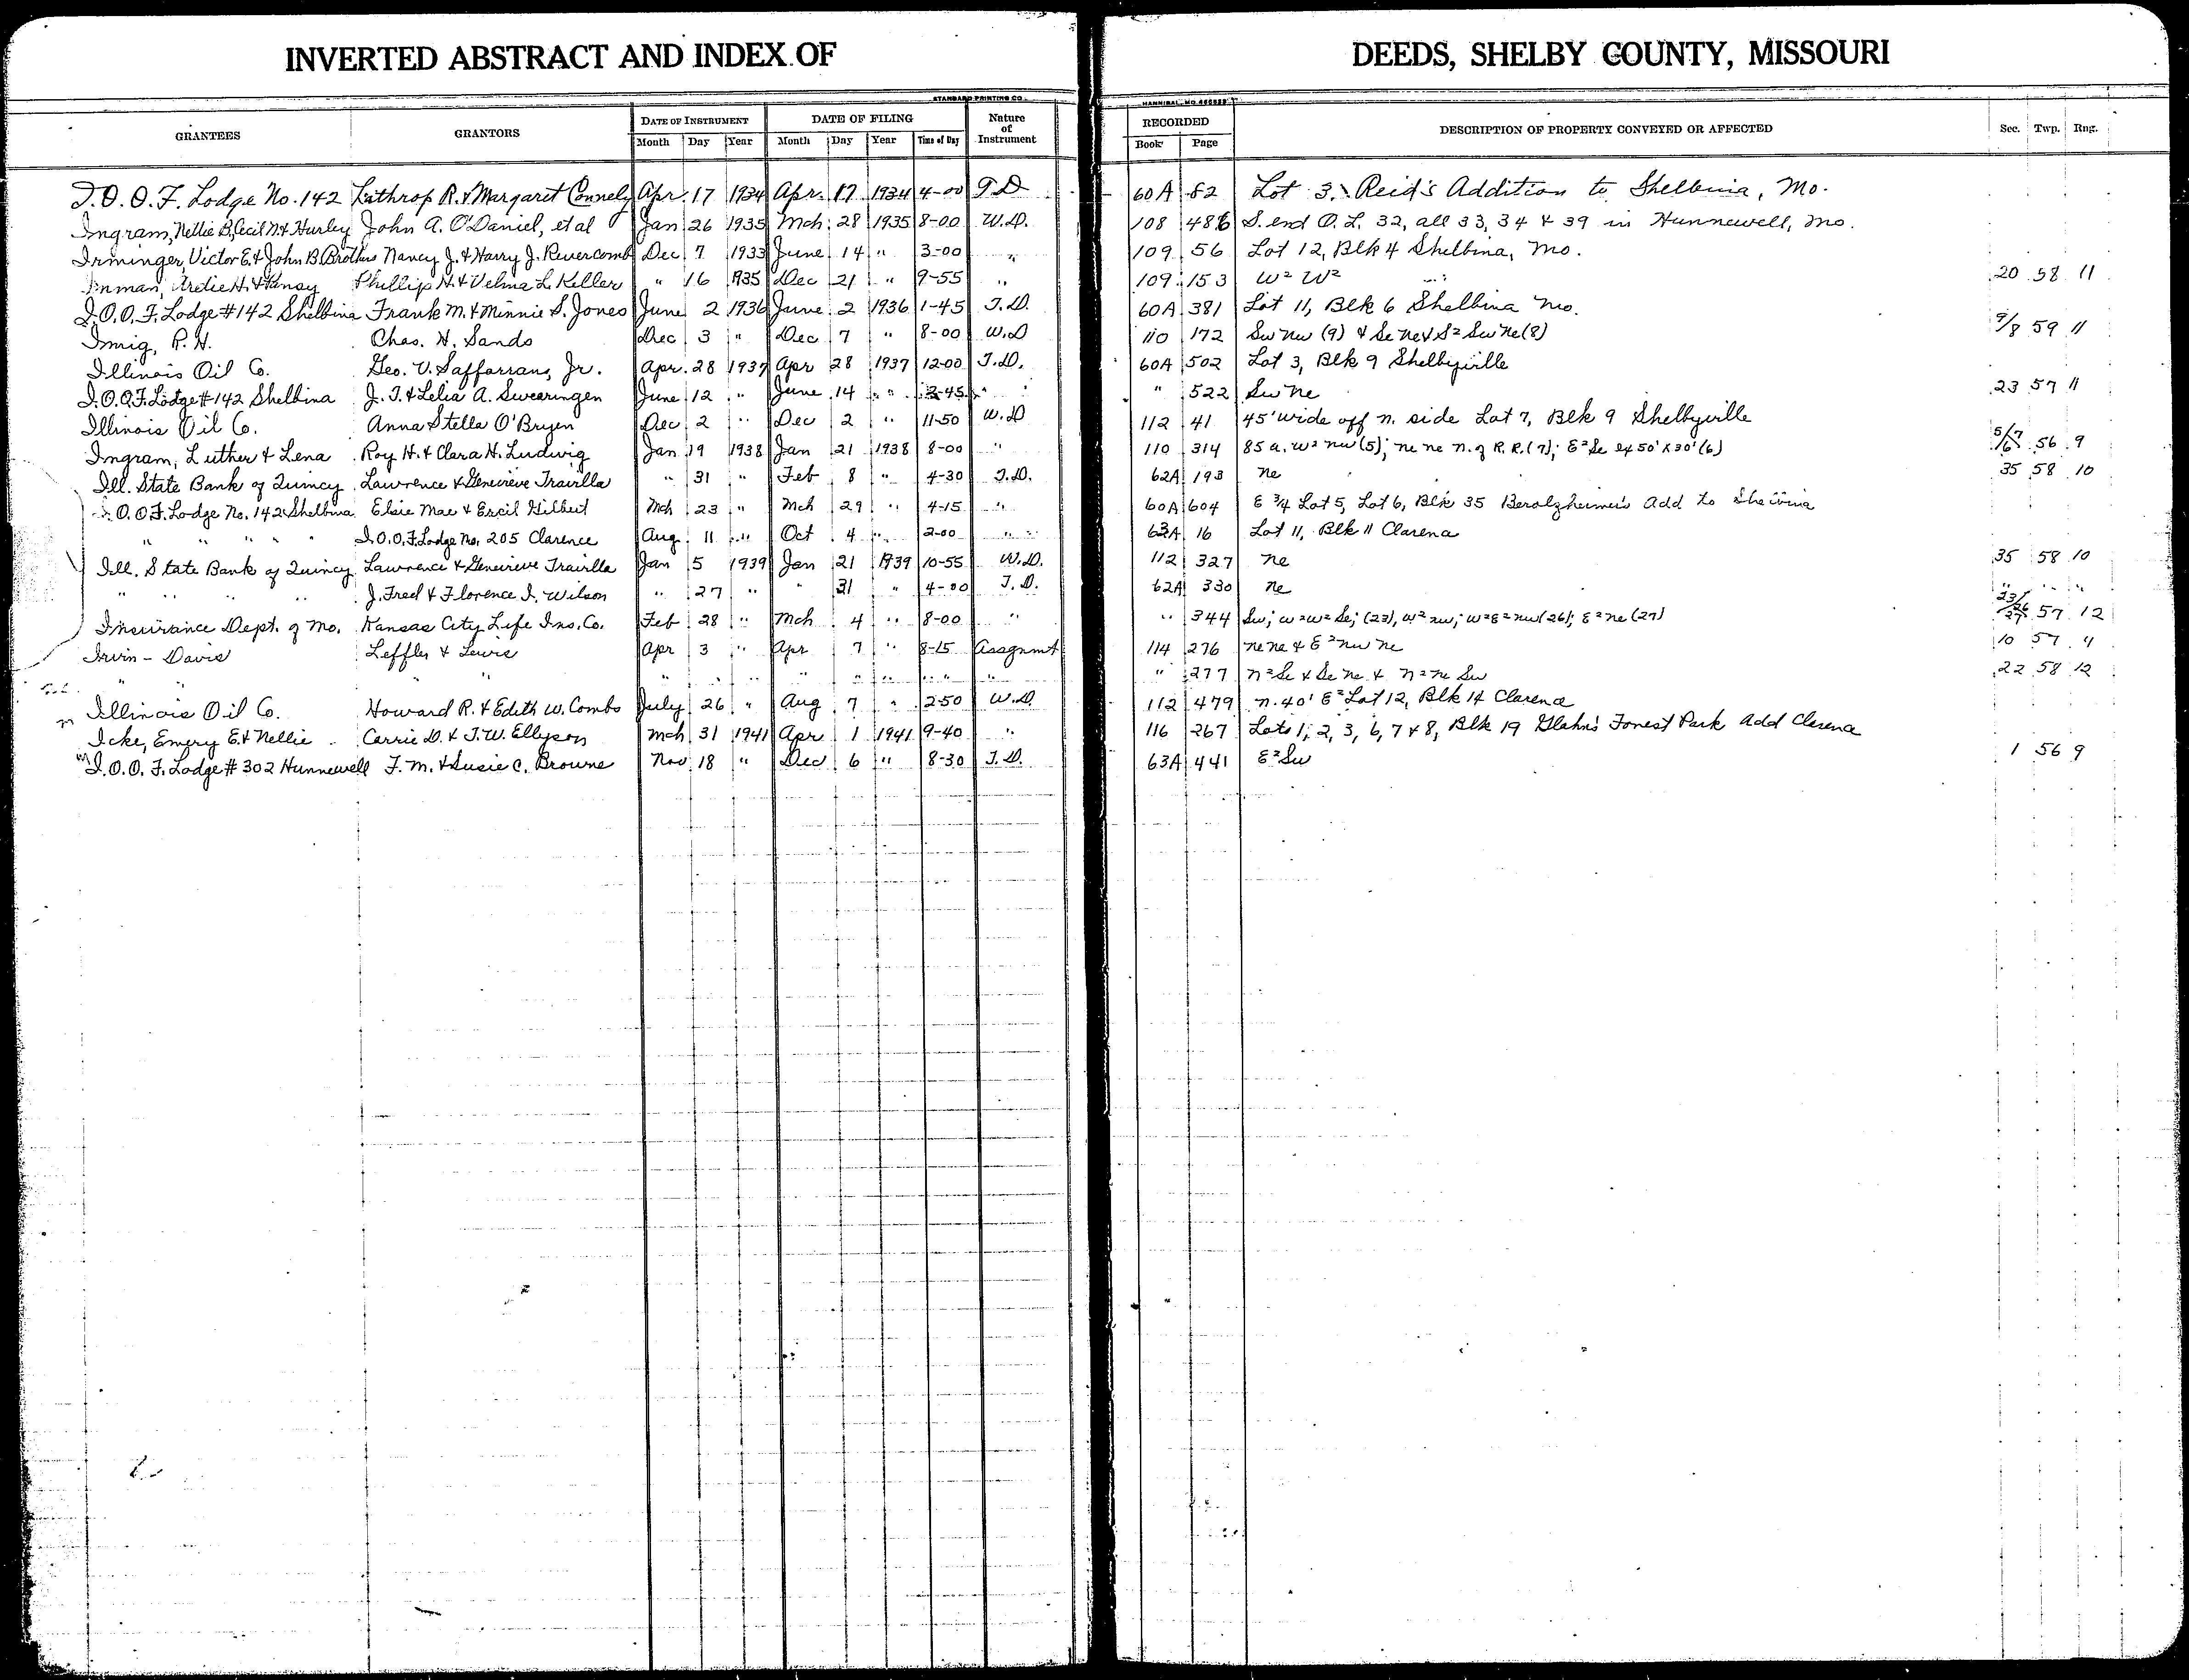 INVERTED ABSTRACT AND INDEX OF DEEDS, SHELBY COUNTY, MISSOURI
STANDARD PRINTING CO. HANNIBAL, MO.
GRANTEES GRANTORS DATE OF INSTRUMENT DATE OF FILING Nature of Instrument RECORDED DESCRIPTION OF PROPERTY CONVEYED OR AFFECTED Sec. Twp. Rng.
Month Day Year Month Day Year Time of Day Book Page
I.O.O.F. Lodge No. 142 Lathrop R. & Margaret Connely Apr. 17 1934 Apr. 17 1934 4-00 T.D 60A 82 Lot 3. Reid's Addition to Shelbina, Mo.
Ingram, Nellie B, Cecil N. & Hurley John A. O'Daniel, et al Jan 26 1935 Mch 28 1935 8-00 W.D. 108 486 S. end O.L. 32, all 33, 34 & 39 in Hunnewell, Mo.
Irminger, Victor E. & John B Brothers Nancy J. & Harry J. Revercomb Dec 7 1933 June 14 " 3-00 " 109 56 Lot 12, Blk 4 Shelbina, Mo.
Inman, Ardie H. & Pansy Phillip H. & Velma L. Keller " 16 1935 Dec 21 " 9-55 " 109 153 W² W² 20 58 11
I.O.O.F. Lodge #142 Shelbina Frank M. & Minnie S. Jones June 2 1936 June 2 1936 1-45 T.D. 60A 381 Lot 11, Blk 6 Shelbina Mo.
Imig, R. H. Chas. H. Sands Dec 3 " Dec 7 " 8-00 W.D 110 172 Sw Nw (9) & Se Ne & S² Sw Ne (8) 9/8 59 11
Illinois Oil Co. Geo. V. Saffarrans, Jr. Apr. 28 1937 Apr 28 1937 12-00 T.D. 60A 502 Lot 3, Blk 9 Shelbyville
I.O.O.F. Lodge #142 Shelbina J. T. & Lelia A. Swearingen June 12 " June 14 " 2-45 " " 522 Sw Ne 23 57 11
Illinois Oil Co. Anna Stella O'Bryen Dec 2 " Dec 2 " 11-50 W.D 112 41 45' wide off N. side Lot 7, Blk 9 Shelbyville
Ingram, Luther & Lena Roy H. & Clara H. Ludwig Jan 19 1938 Jan 21 1938 8-00 " 110 314 85 a. W² NW (5); Ne Ne N. of R.R. (7); E² Se ex 50' x 30' (6) 5/7/6 56 9
Ill. State Bank of Quincy Lawrence & Genevieve Trairlla " 31 " Feb 8 " 4-30 T.D. 62A 193 Ne 35 58 10
I.O.O.F. Lodge No. 142 Shelbina Elsie Mae & Ercil Gilbert Mch 23 " Mch 29 " 4-15 " 60A 604 E 3/4 Lot 5, Lot 6, Blk 35 Beralzheimer's Add to Shelbina
" " " " " I.O.O.F. Lodge No. 205 Clarence Aug 11 " Oct 4 " 2-00 " 63A 16 Lot 11, Blk 11 Clarence
Ill. State Bank of Quincy Lawrence & Genevieve Trairlla Jan 5 1939 Jan 21 1939 10-55 W.D. 112 327 Ne 35 58 10
" " " " J. Fred & Florence I. Wilson " 27 " " 31 " 4-00 T.D. 62A 330 Ne " " "
Insurance Dept. of Mo. Kansas City Life Ins. Co. Feb 28 " Mch 4 " 8-00 " " 344 Sw; W² W² Se; (23), W² NW; W² E² NW (26); E² Ne (27) 23/26/27 57 12
Irvin - Davis Leffler & Lewis Apr 3 " Apr 7 " 8-15 Assgnmt 114 276 Ne Ne & E² NW Ne 10 57 9
" " " " " " " " " " " " " 277 N² Se & Se Ne & N² Ne Sw 22 58 12
Illinois Oil Co. Howard R. & Edith W. Combs July 26 " Aug 7 " 2-50 W.D. 112 479 N. 40' E² Lot 12, Blk 14 Clarence
Icke, Emery E. & Nellie Carrie D. & J.W. Ellyson Mch 31 1941 Apr 1 1941 9-40 " 116 267 Lots 1, 2, 3, 6, 7 & 8, Blk 19 Glahn's Forest Park Add Clarence
I.O.O.F. Lodge #302 Hunnewell F. M. & Susie C. Browne Nov 18 " Dec 6 " 8-30 T.D. 63A 441 E² Sw 1 56 9